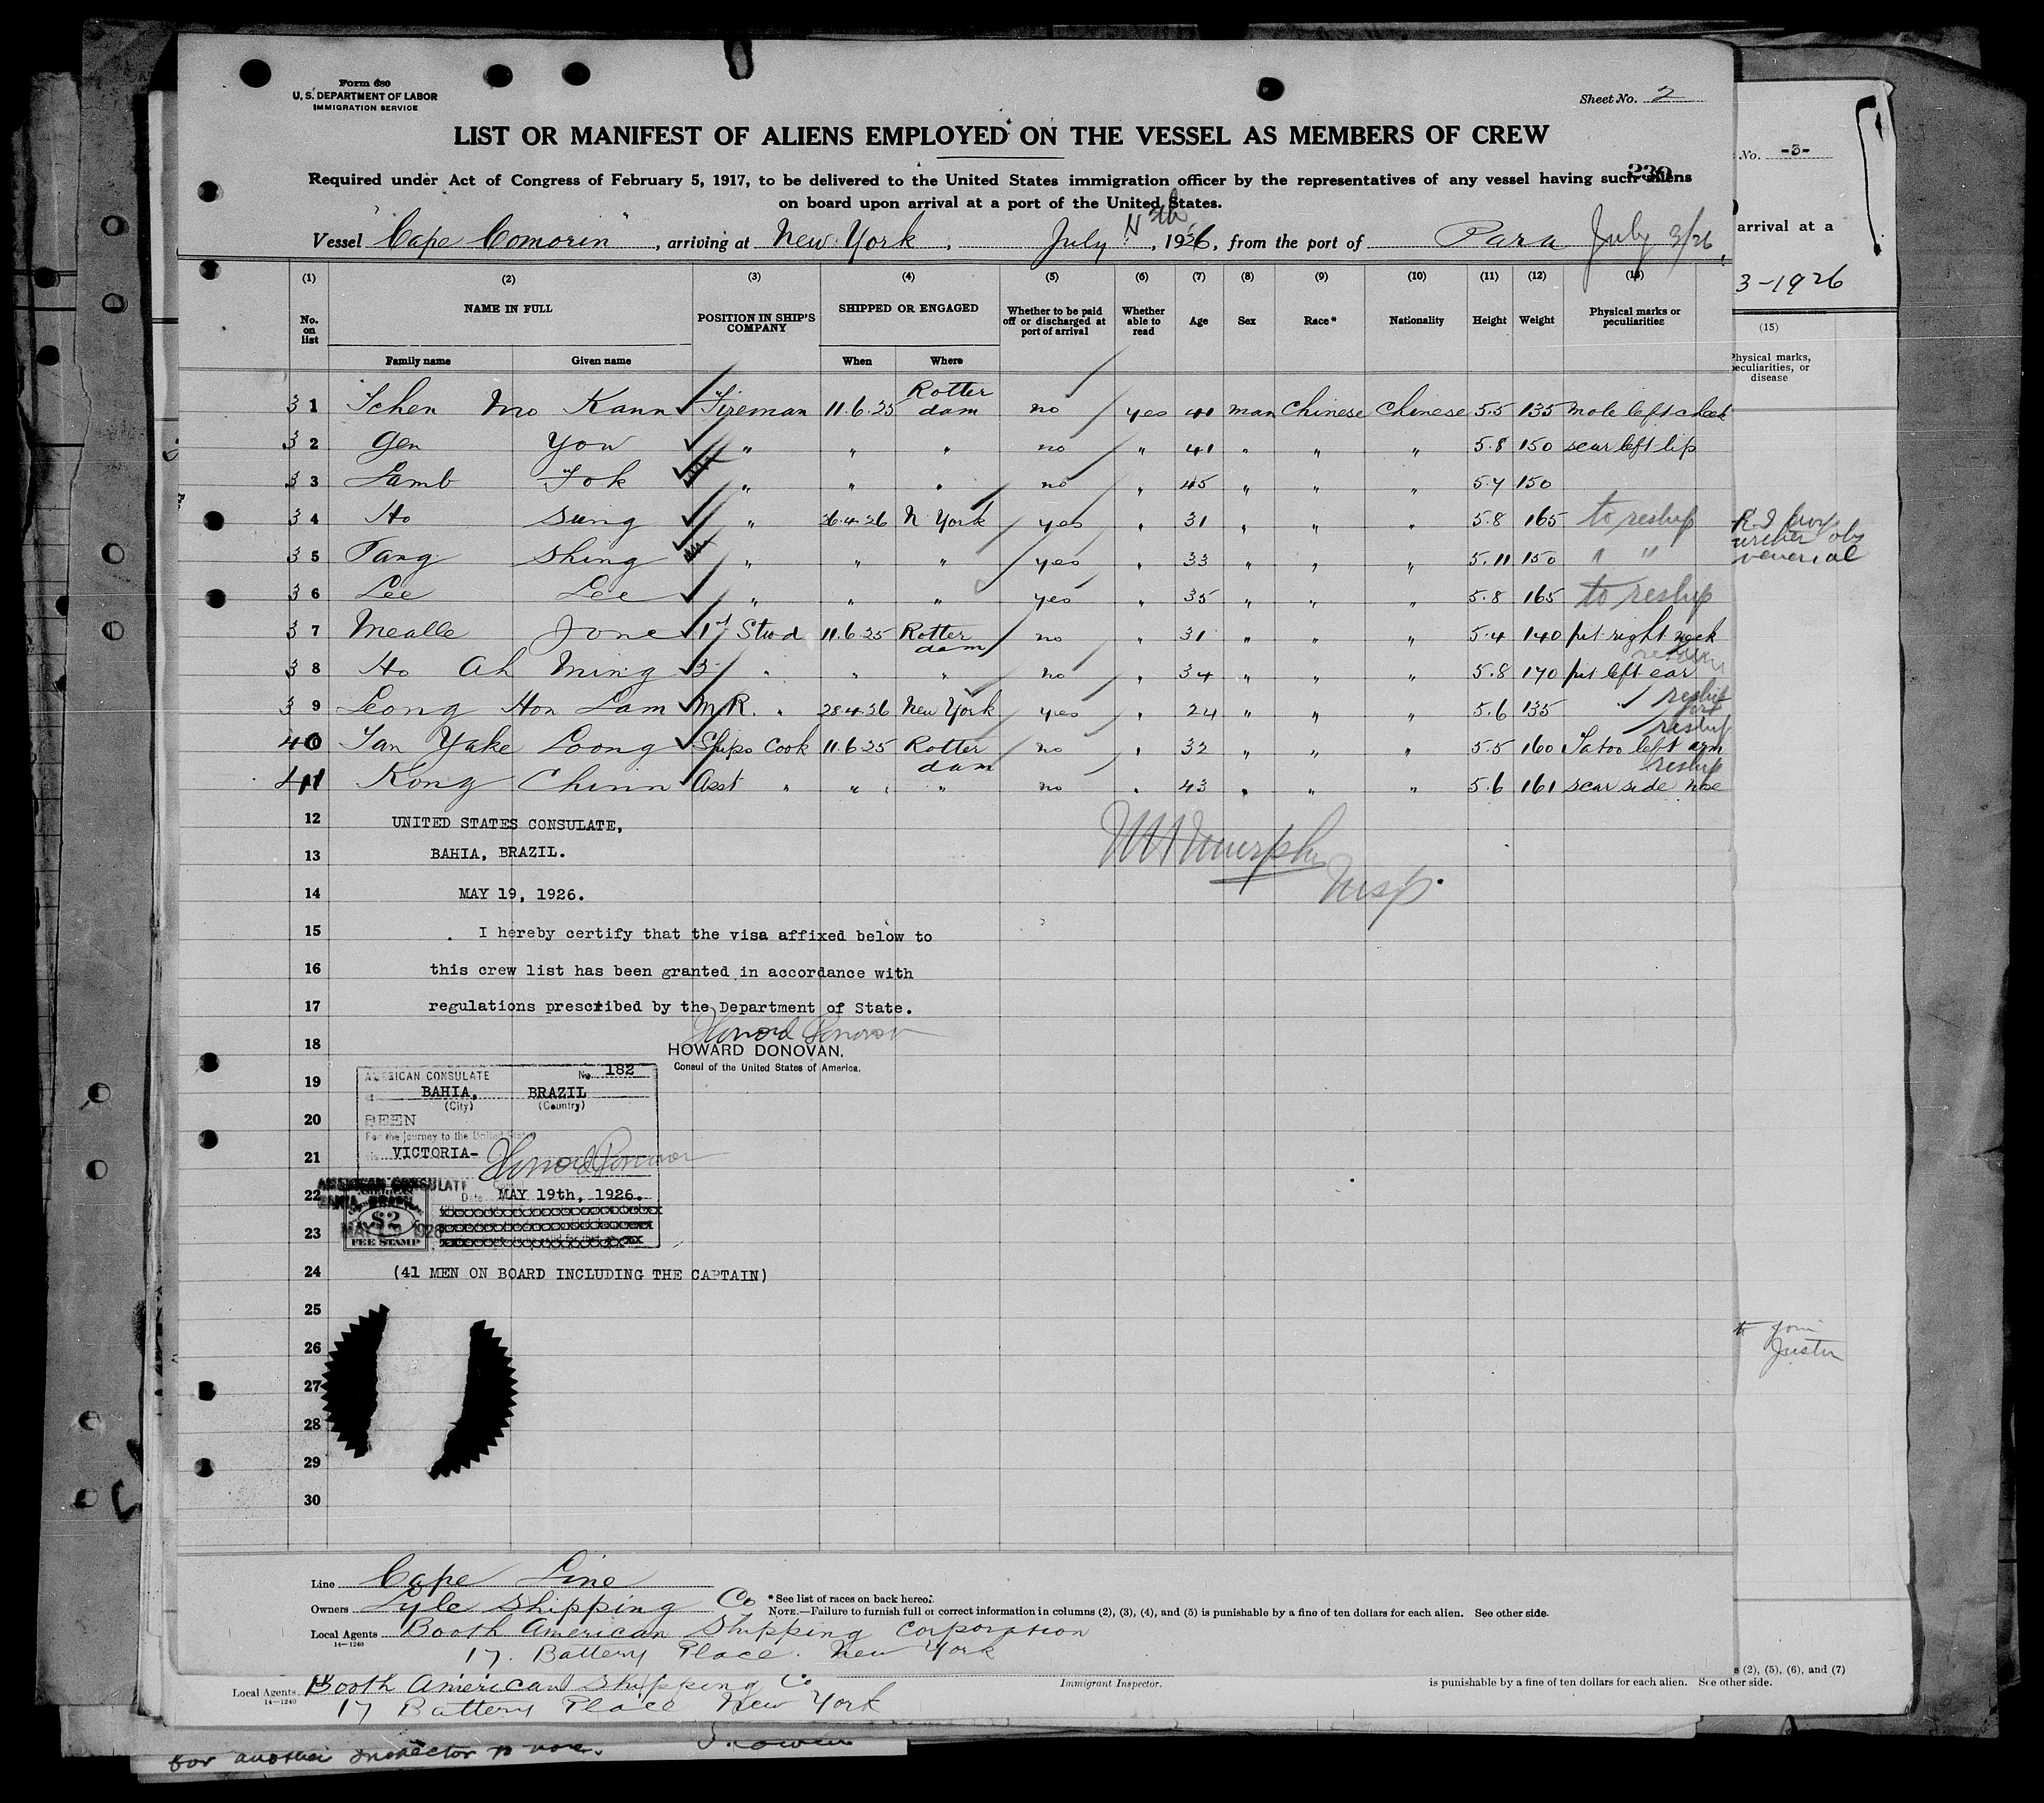 Form 680
U. S. DEPARTMENT OF LABOR
IMMIGRATION SERVICE
Sheet No. 2
LIST OR MANIFEST OF ALIENS EMPLOYED ON THE VESSEL AS MEMBERS OF CREW
No. -3-
239
Required under Act of Congress of February 5, 1917, to be delivered to the United States immigration officer by the representatives of any vessel having such aliens
on board upon arrival at a port of the United States.
arrival at a
Vessel "Cape Comorin", arriving at New York, July 11th, 1926, from the port of Para July 3/26
3-1926
(1) (2) (3) (4) (5) (6) (7) (8) (9) (10) (11) (12) (13)
No. on list NAME IN FULL Family name Given name POSITION IN SHIP'S COMPANY SHIPPED OR ENGAGED When Where Whether to be paid off or discharged at port of arrival Whether able to read Age Sex Race* Nationality Height Weight Physical marks or peculiarities
(15)
Physical marks,
peculiarities, or
disease
31 Tchen Mo Kann Fireman 11.6.25 Rotterdam no yes 41 man Chinese Chinese 5.5 135 mole left cheek
32 Gen Yow " " " no " 41 " " " 5.8 150 scar left lip
33 Lamb Fok " " " no " 45 " " " 5.7 150
34 Ho Sung " 26.4.26 N York yes " 31 " " " 5.8 165 to reship
35 Fang Shing " " " yes " 33 " " " 5.11 150 " "
venereal
36 Lee Lee " " " yes " 35 " " " 5.8 165 to reship
37 Mealle Jone 1st Stwd 11.6.25 Rotterdam no " 31 " " " 5.4 140 pit right neck
38 Ho Ah Ming 3 " " " no " 34 " " " 5.8 170 pit left ear
39 Leong Hon Lam M.R. " 28.4.26 New York yes " 24 " " " 5.6 135 reship
40 Tan Yake Loong Ships Cook 11.6.25 Rotterdam no " 32 " " " 5.5 160 Tatoo left arm reship
41 Kong Chinn Asst " " " " no " 43 " " " 5.6 161 scar side nose reship
12 UNITED STATES CONSULATE,
13 BAHIA, BRAZIL.
Murphy
Insp.
14 MAY 19, 1926.
15 I hereby certify that the visa affixed below to
16 this crew list has been granted in accordance with
17 regulations prescribed by the Department of State.
Howard Donovan
18 HOWARD DONOVAN.
Consul of the United States of America.
19 AMERICAN CONSULATE No. 182
BAHIA, BRAZIL
(City) (Country)
20 SEEN
For the journey to the United States
21 via VICTORIA- Howard Donovan
Consul
AMERICAN CONSULATE
BAHIA, BRAZIL
22 Date MAY 19th, 1926.
AMERICAN
$2
FEE STAMP
MAY 19 1926
23
24 (41 MEN ON BOARD INCLUDING THE CAPTAIN)
25
26
27
28
29
30
to join
Line Cape Line
Owners Lyle Shipping Co
* See list of races on back hereof.
NOTE.—Failure to furnish full or correct information in columns (2), (3), (4), and (5) is punishable by a fine of ten dollars for each alien. See other side.
Local Agents Booth American Shipping Corporation
14—1240
17. Battery Place. New York
s (2), (5), (6), and (7)
Local Agents Booth American Shipping Co
14—1240
Immigrant Inspector.
is punishable by a fine of ten dollars for each alien. See other side.
17 Battery Place New York
for another Inspector